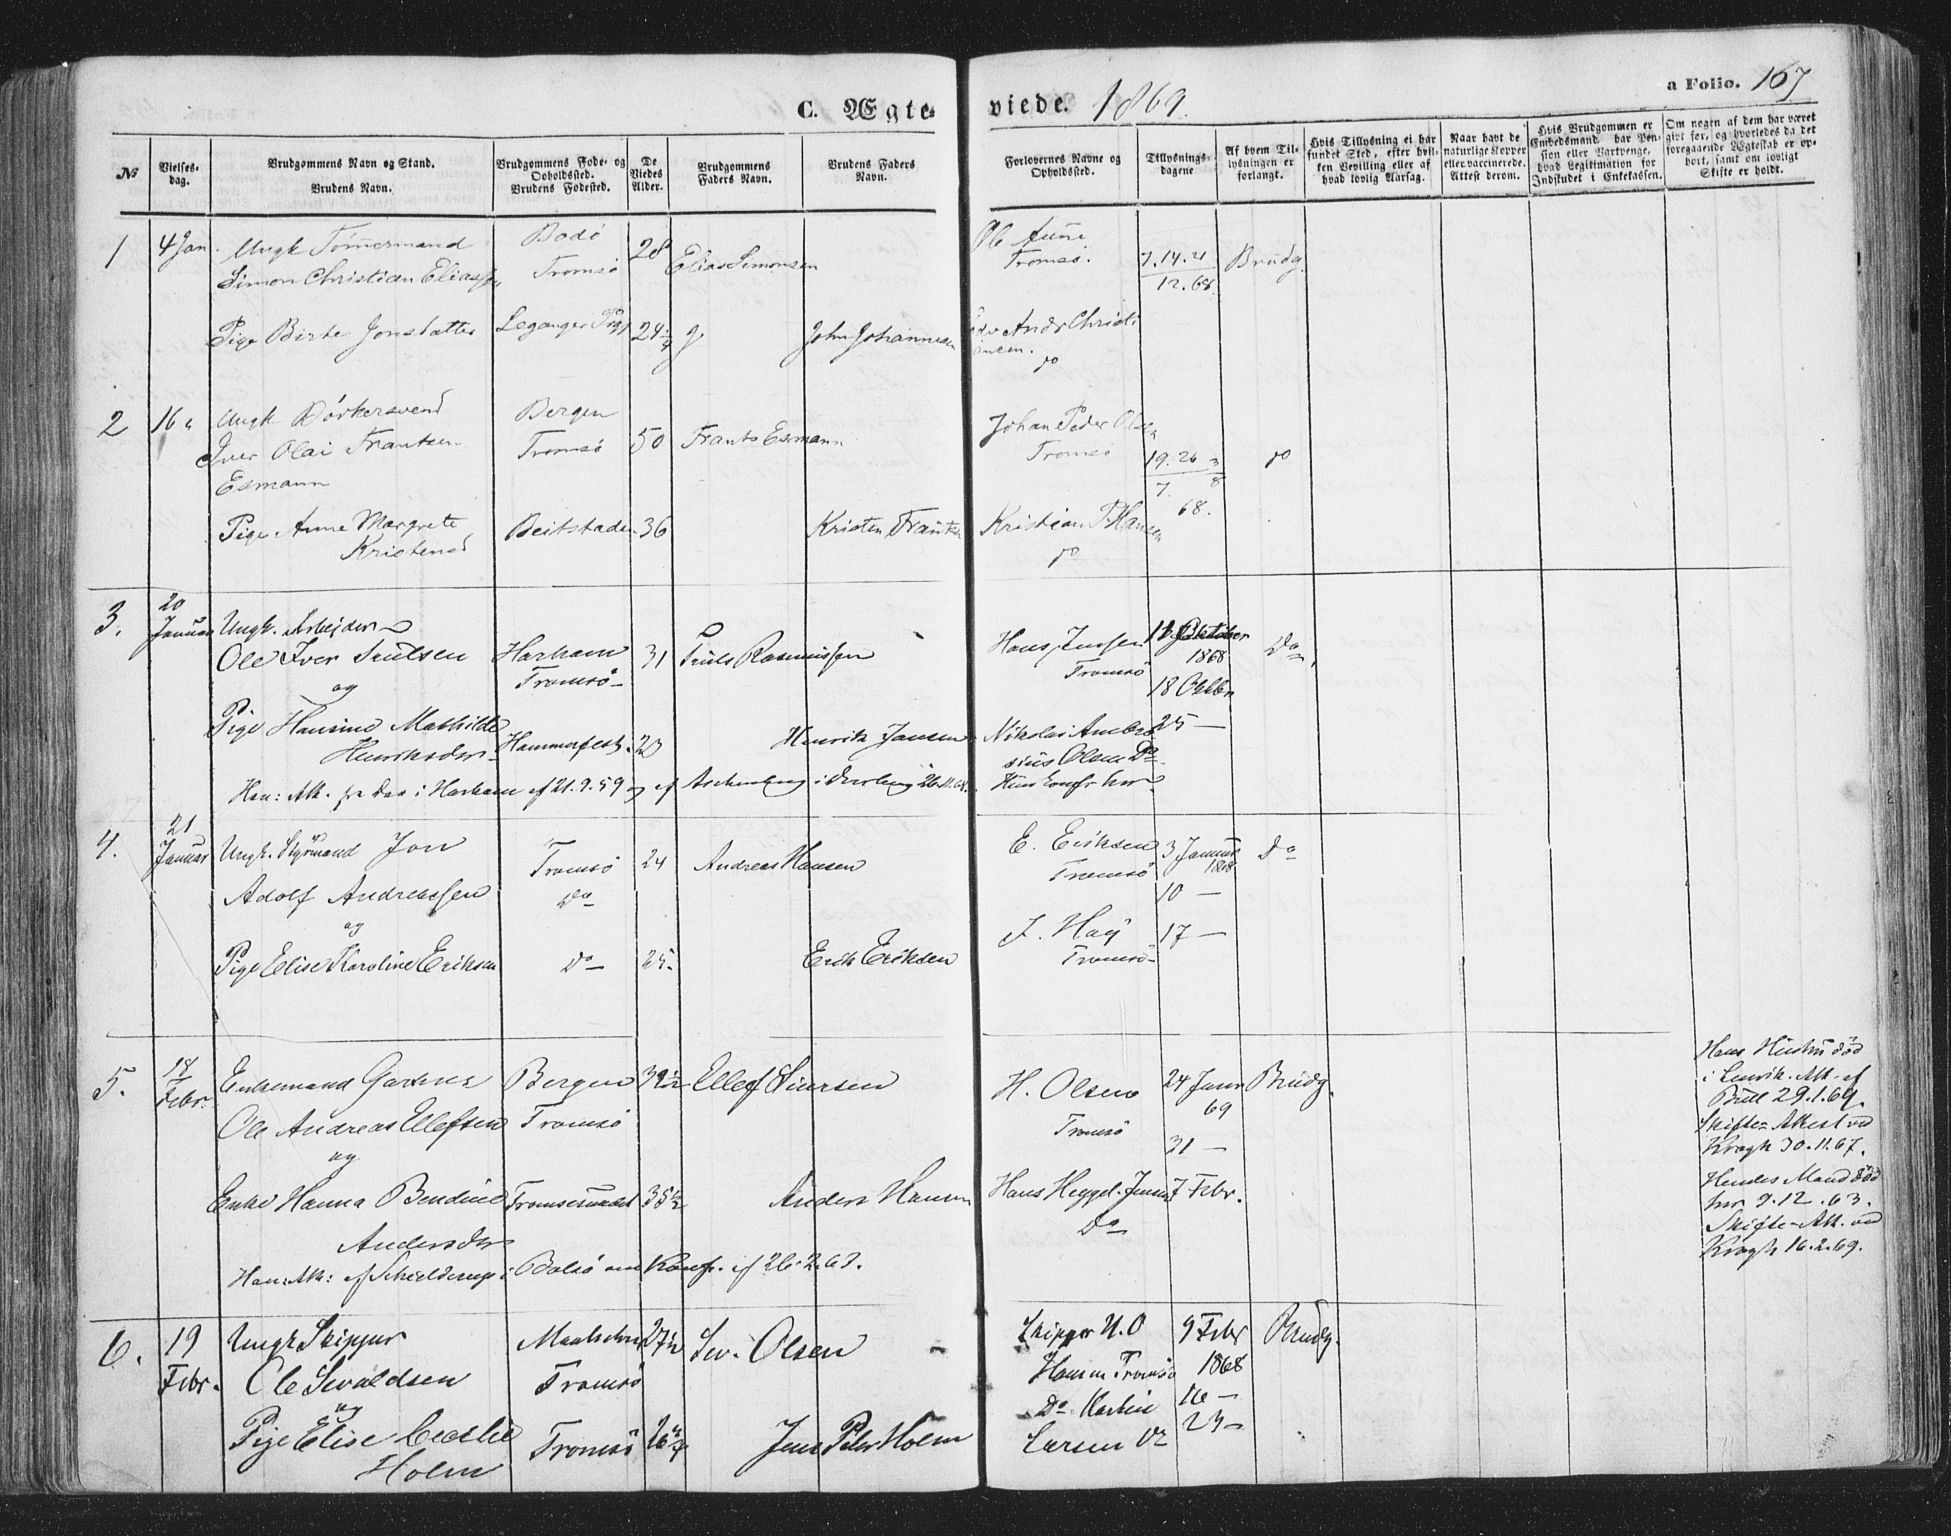 C. Ægte-
viede. 1869.
a Folio. 167
№
Vielses-
dag.
Brudgommens Navn og Stand.
Brudens Navn.
Brudgommens Føde- og
Opholdssted.
Brudens Fødested.
De
Viedes
Alder.
Brudgommens
Faders Navn.
Brudens Faders
Navn.
Forlovernes Navne og
Opholdssted.
Tillysnings-
dagene
Af hvem Til-
lysningen er
forlangt.
Hvis Tillysning ei har
fundet Sted, efter hvil-
ken Bevilling eller af
hvad lovlig Aarsag.
Naar havt de
naturlige Kopper
eller vaccinerede.
Attest derom.
Hvis Brudgommen er
Embedsmand, har Pen-
sion eller Vartpenge,
hvad Legitimation for
Indskudet i Enkekassen.
Om nogen af dem har været
gift før, og hvorledes da det
foregaaende Ægteskab er op-
hørt, samt om lovligt
Skifte er holdt.
1 4 Jan. Ungk Tømermand Bodø 28 Elias Simonsen Ole Aune 7. 14. 21 Brudg.
Simon Christian Eliassen Tromsø Tromsø. 12. 68.
Pige Birte Jonsdatter Leganger 24 John Johannesen Andr Christi
ansen. do
2 16 " Ungk Bødkersvend Bergen 50 Frants Esmann Johan Peder Olsen do
Iver Olai Frantzen Tromsø Tromsø 19. 26
Esmann 68.
Pige Anne Margrete Beitstaden 36 Kristen Frantzen Kristian P Hansen
Kristensd do
3. 20
Januar Ungk. Arbejder Hans Jensen Oktober Do
Ole Iver Trulsen Harham 31 Truls Rasmussen 1868
og Tromsø Tromsø 18 Oktbr
Pige Hansine Mathilde Hammerfest 23 Henrik Jansen Nikolai Ambro 25 —
Henriksdtr sius Olsen Do
Han: Att. fra Daa i Harham af 21.9.59 og af Aschenberg i 26.11.68.
4. 21
Januar Ungk. Styrmand Jon Tromsø 24 Andreas Hansen E. Eriksen 3 Januar Do
Adolf Andreassen Do Tromsø 1868
og 10 —
Pige Elise Karoline Eriksen Do 25. Erik Eriksen J. Hay 17 —
Tromsø
5. 18
Febr. Enkemand Gartner Bergen 39½ Ellef Siversen H. Olsen 24 Janr Brudg.
Ole Andreas Ellefsen Tromsø Tromsø 69
og 31 —
Enke Hanna Bendine Tromsesundet 35½ Anders Hansen Hans Heggel. Jensen 7 Febr.
Andersdtr Do
Han: Att: af Schielderup i Bolsø om Konf. af 26.2.63.
Hans Hustru død
i Lenvik. Att. af
Bull 29.1.69.
Skifte-Attest ved
Krogh 30.11.67.
Hendes Mand død
her 9.12.63.
Skifte-Att. ved
Krogh 16.2.69.
6. 19 Ungk Skipper Maalselven 27½ Siv. Olsen Skipper H. O 9 Febr Brudg.
Febr. Ole Sivaldsen Tromsø Hansen Tromsø 1868
og Do Martin 16 —
Pige Elise Cecilie Tromsø 26 Jens Peter Holm Larsen Do 23 —
Holm